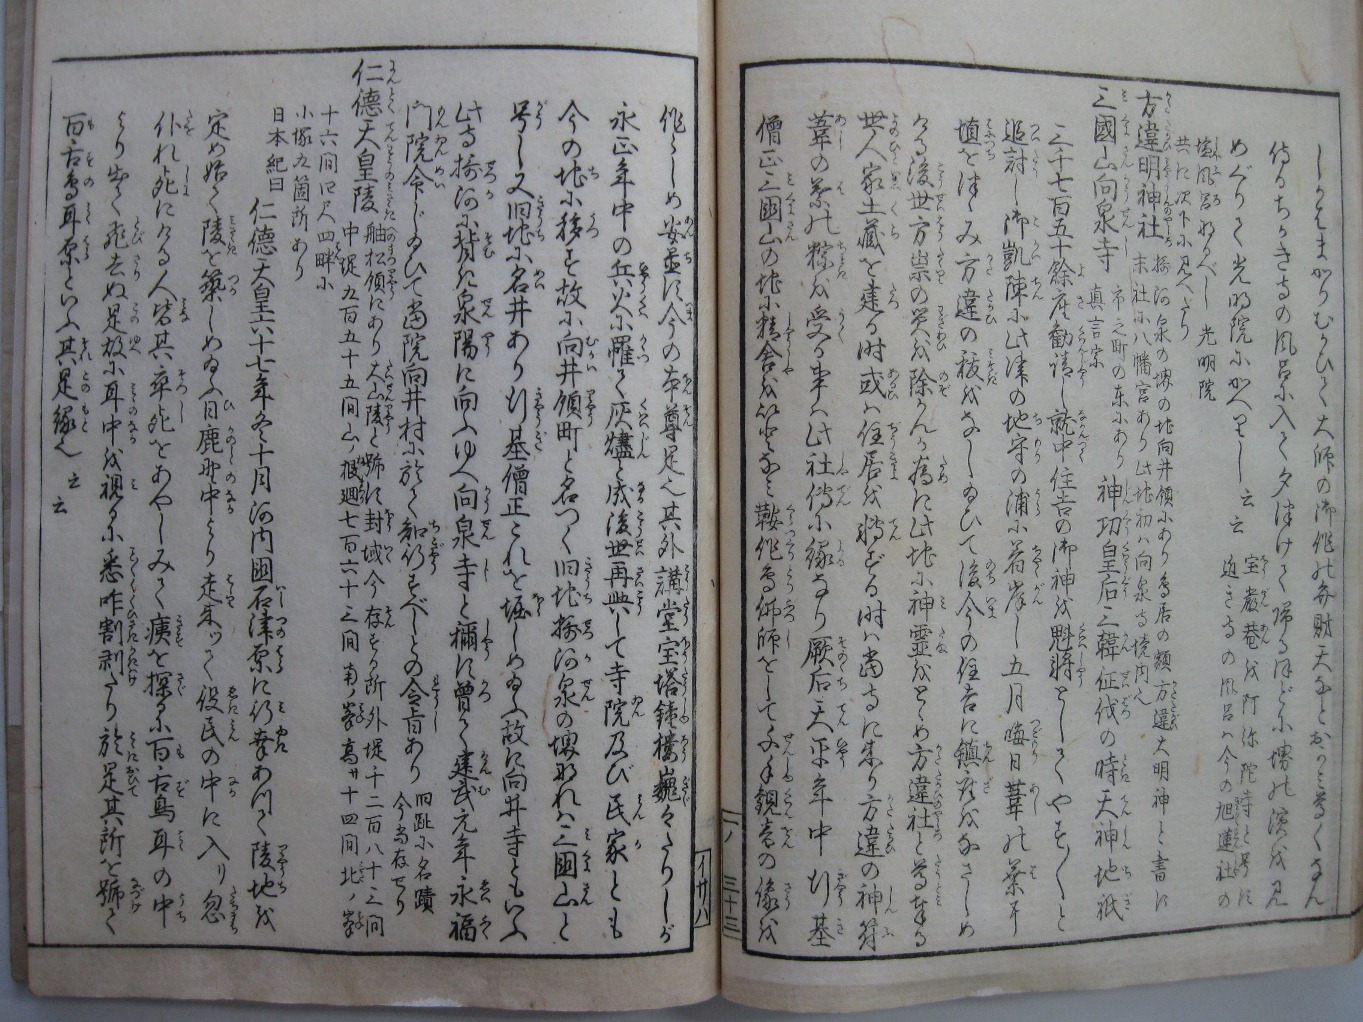 しくはまかりむかひて大師の御作の弁財天をおかみ奉てなん
侍るちかき寺の風呂に入て夕つけて帰るほどに堺の濱を見
めぐりて光明院にかへりし云云
宝巌巷は阿弥陀寺と号に
近き寺の風呂は今の旭蓮社の
塩風呂なるべし 光明院
共に次下に見へたり
方違明神社
摂河泉の堺の地向井領にあり鳥居の額方違大明神と書に
末社に八幡宮あり此地初は向泉寺境内也
三國山向泉寺
真言宗
市之町の東にあり
神功皇后三韓征伐の時天神地祇
三千七百五十餘座勧請し就中住吉の御神を魁将としてやすやすと
追討し御凱陣に此津の地守の浦に着岸し五月晦日葦の葉に
埴をつつみ方違の祓をなしゐひて後今の住吉に鎮座なさしめ
ける後世方祟の災を除かんが為に此地に神霊をとめ方違社と尊奉る
世人家土蔵を建る時或は住居を移ずる時は當寺に来り方違の神符
葦の葉の粽を受る事は此社伝に縁なり厥后天平年中行基
僧正三國山の地に精舎を営み鞍作鳥佛師をして千手観音の像を
作らしめ安置に今の本尊是也其外講堂宝塔鐘楼巍々たりしが
永正年中の兵火に罹て灰燼と成後世再興して寺院及び民家とも
今の地に移す故に向井領町と名つく旧地摂河泉の堺なれは三國山と
号し又旧地に名井あり行基僧正これを堀しめゐふ故に向井寺ともいふ
此寺摂河に背き泉陽に向ふゆへ向泉寺と稱に曽て建武元年永福
門院令じゐひて當院向井村に於て知行すべしとの令旨あり
旧趾に名蹟
今尚存せり
仁德天皇陵
舳松領にあり大山陵と號に封域今存する所外堤千二百八十三間
中堤九百五十五間山ノ根廻七百六十三間南ノ峯高サ十四間北ノ峯
十六間口尺四畔に
小塚九箇所あり
日本紀曰
仁德天皇六十七年冬十月河内國石津原に行幸あつて陵地を
定め始て陵を築しめゐふ日鹿野中より走来ッて役民の中に入り忽
仆れ死にける人皆其卒死をあやしみて痍を探るに百舌鳥耳の中
より出て飛去ぬ是故に耳中を視るに悉咋割剥たり於是其所を號て
百舌鳥耳原といふ其是縁也云云
一ノ 三十三
イサハ